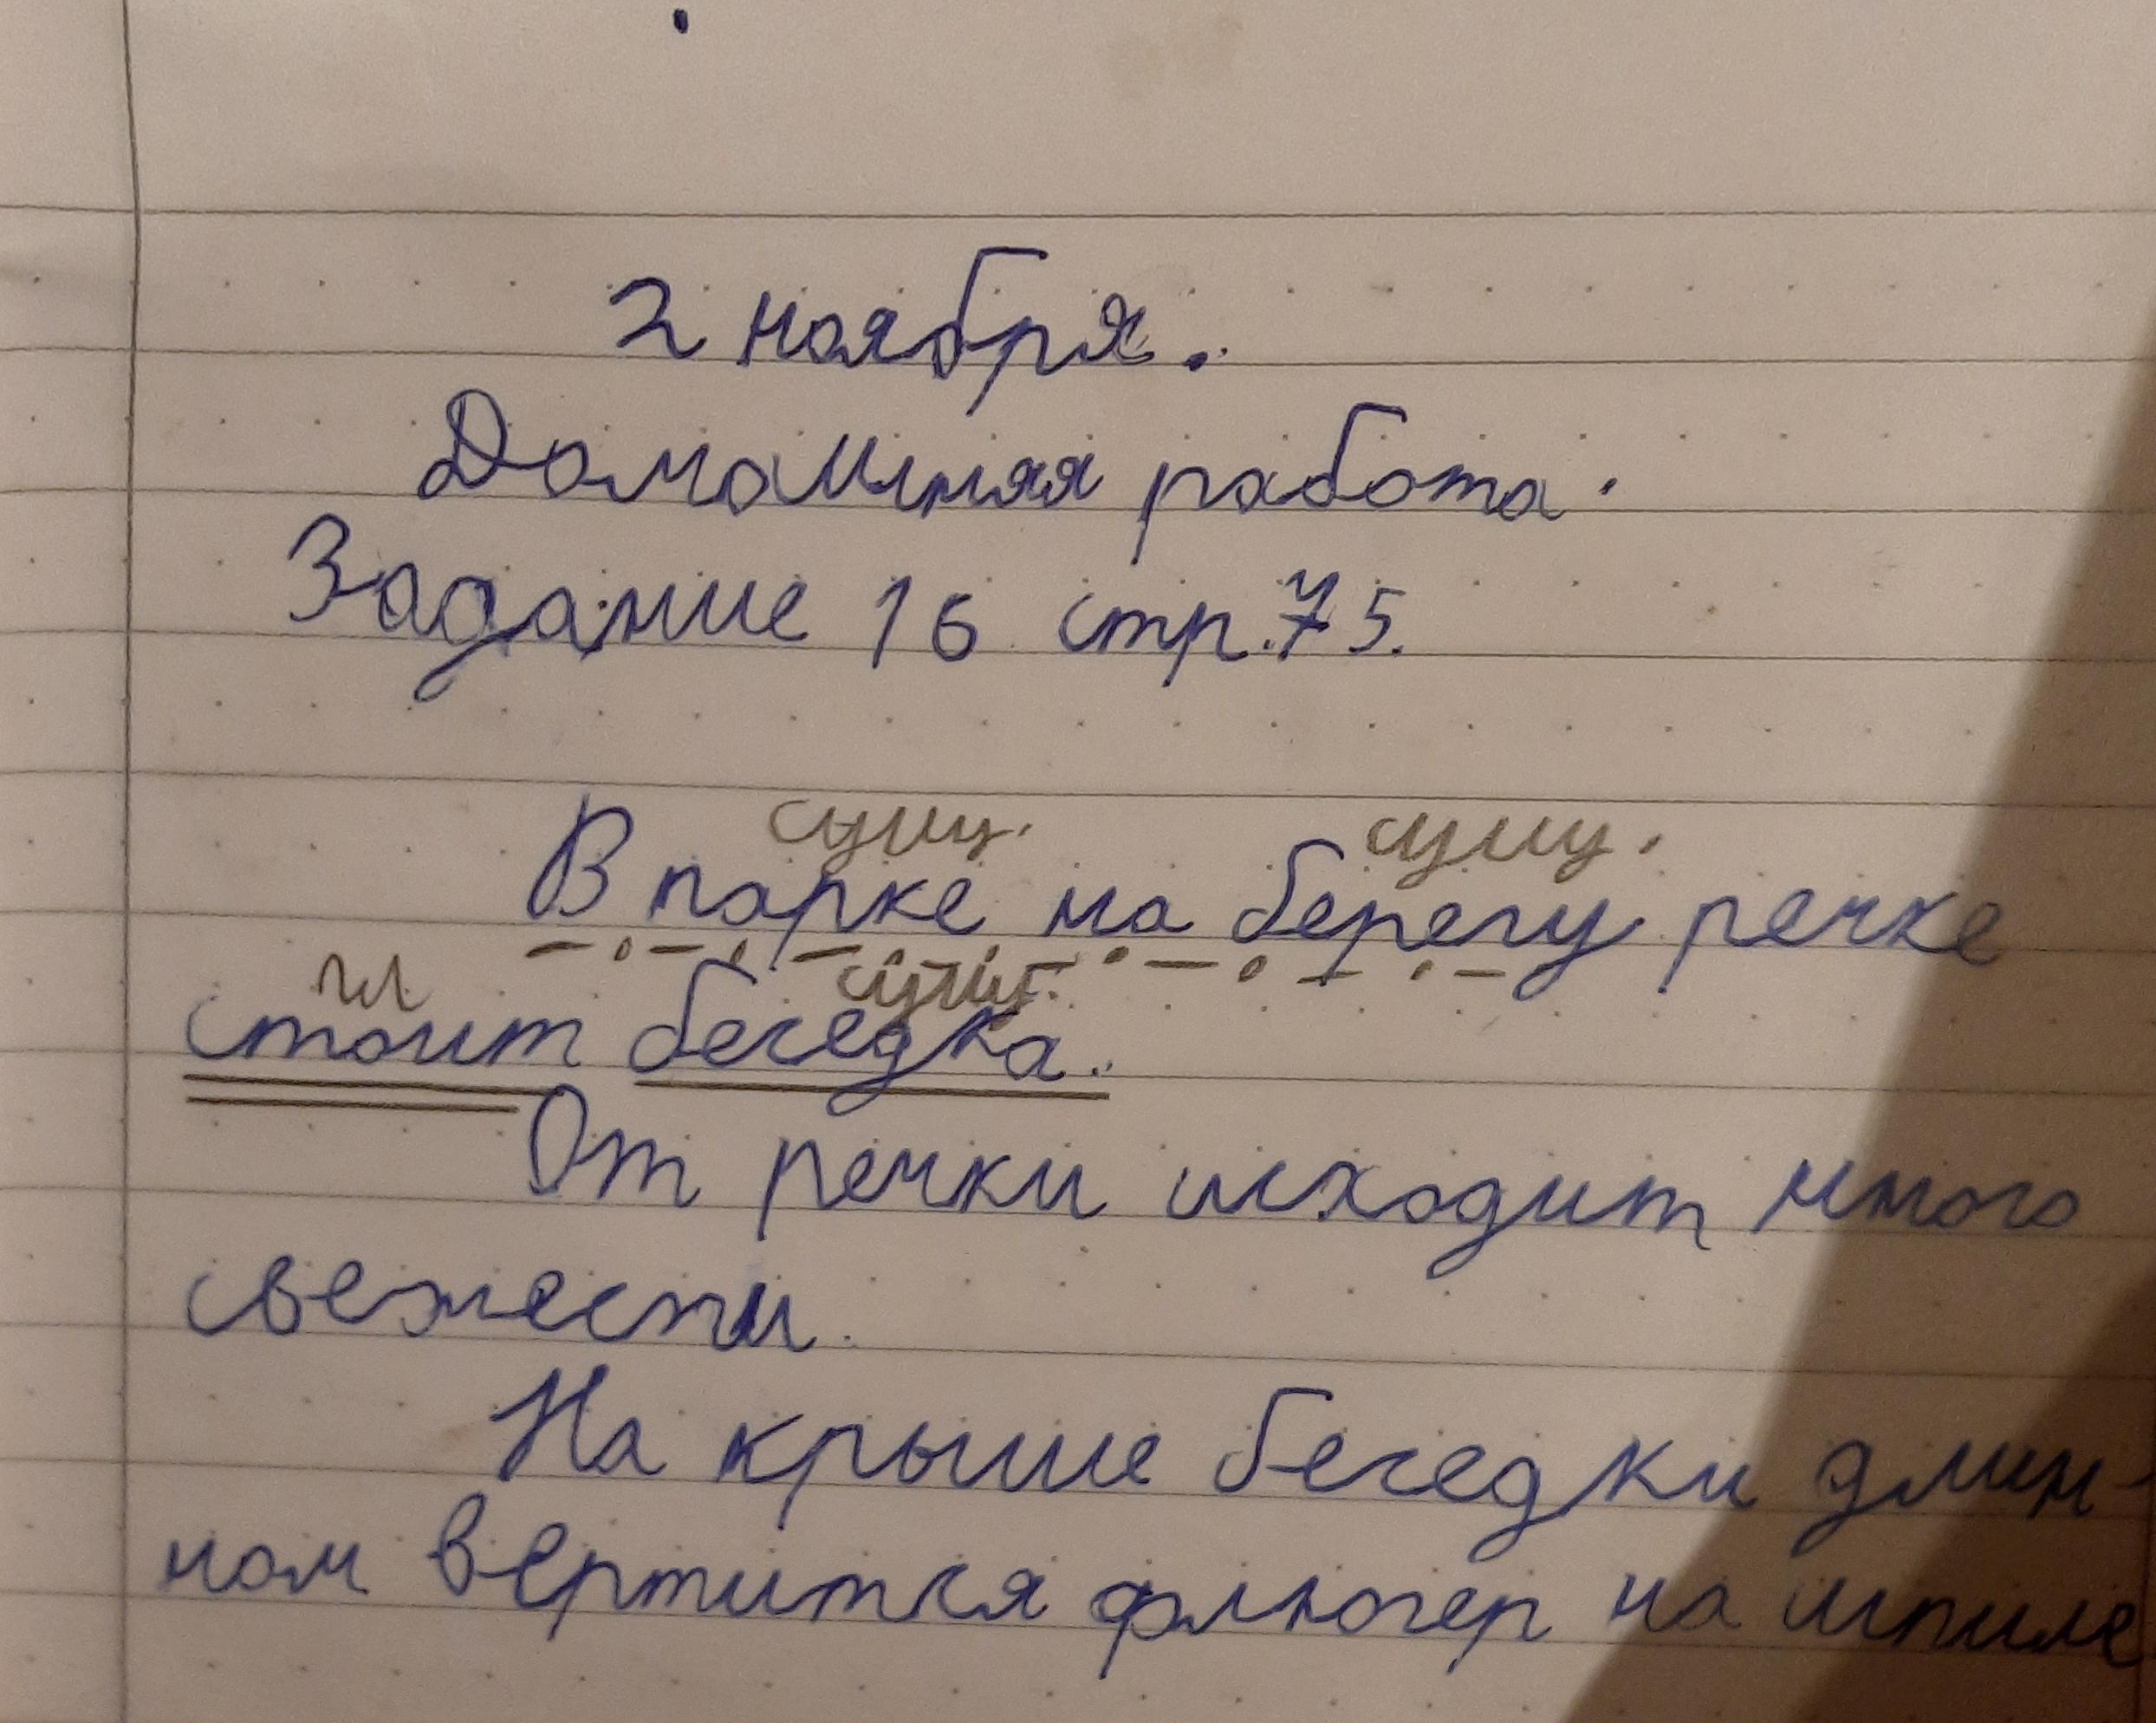 2 ноября.
Домашняя работа.
Задание 16 стр. 75.
сущ. сущ.
В парке на берегу речке
гл сущ.
стоит беседка.
От речки исходит много
свежести.
На крыше беседки длин-
ном вертится флюгер на шпиле